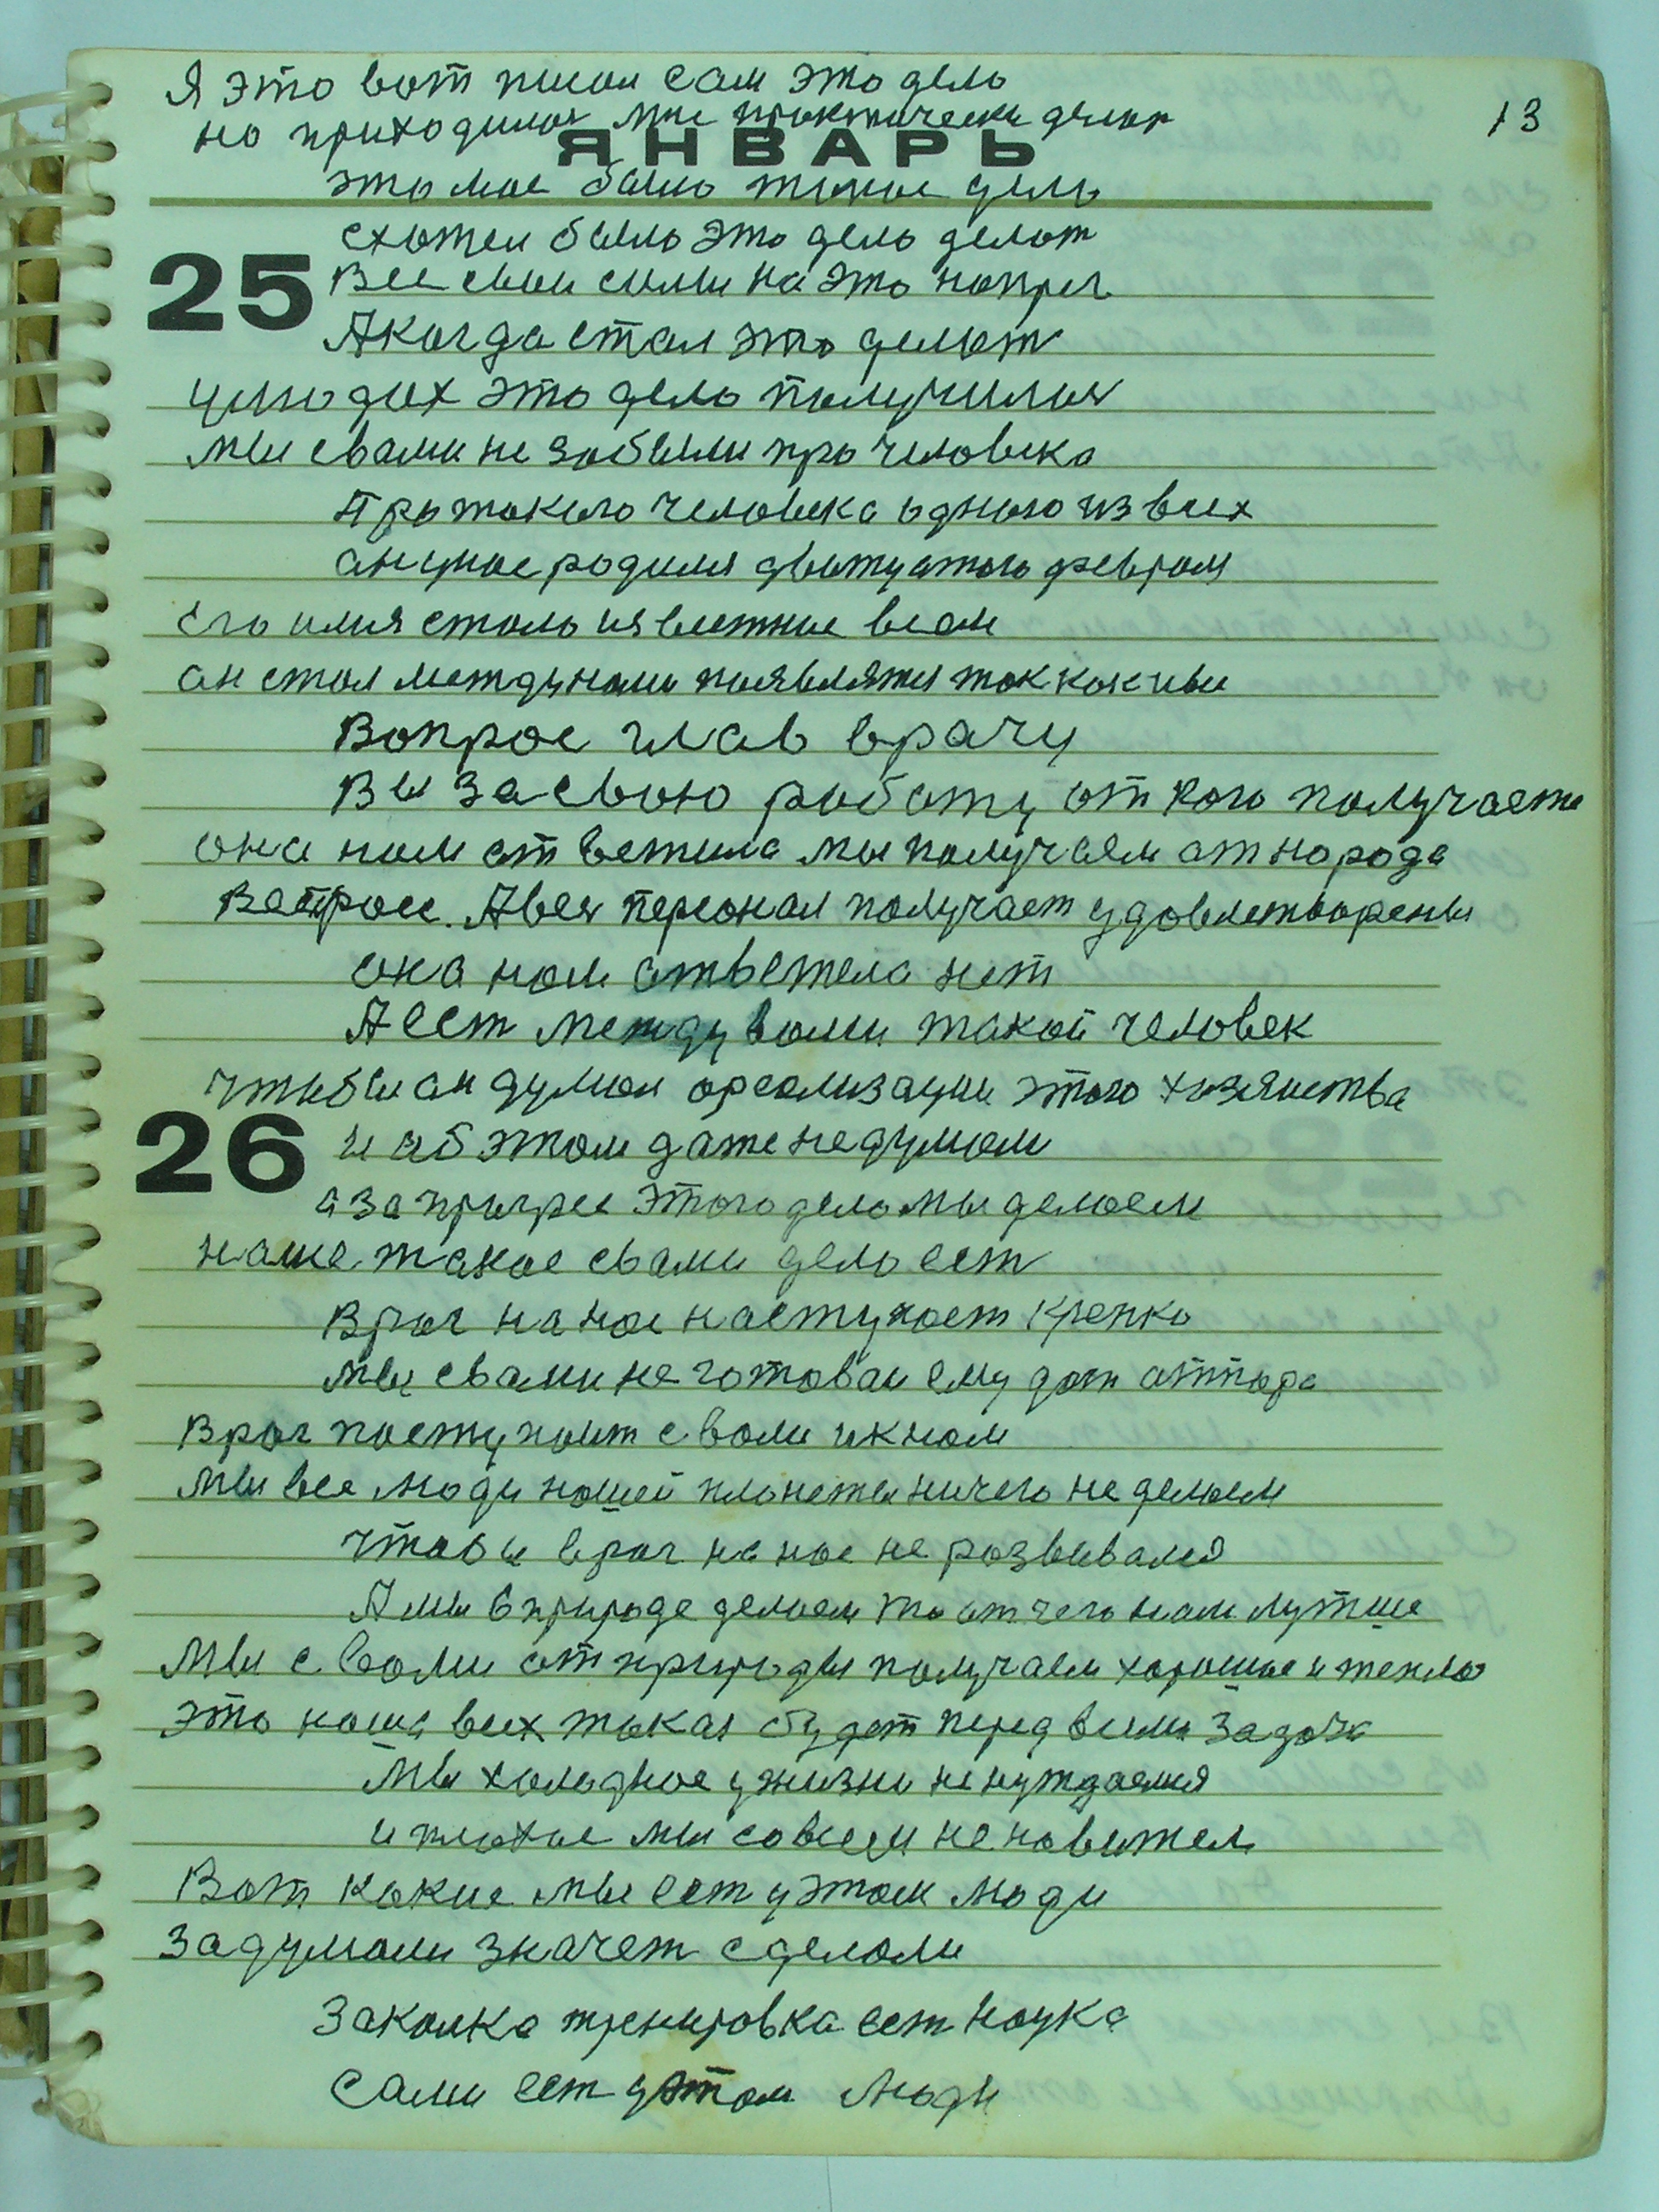 Я это вот писал сам это дело
13
но приходилос мне практически делат
ЯНВАРЬ
это мое было такое дело
схотел было это дело делат
25
Все свои силы на это напрег
А когда стал это делат
у людях это дело получилос
мы свами не забыли про человека
Про такого человека одного из всех
ан у нас родился дватцатого февраля
его имя стало известное всем
ан стал между нами появлятся так как и вы
Вопрос глав врачу
Вы за свою работу от кого получаете
она нам ответила мы получаем от народа
Вапрос. А весь персонал получает удовлетворены
она нам ответела нет
А ест между вами такой человек
чтобы ан думал ореализации этого хозяиства
26
и аб этом даже не думали
а за прогрес этого дела мы делаем
наше такое свами дело ест
Враг на нас наступает крепко
мы свами не готовы ему дат атпора
Враг поступает с вами и к нам
мы все люди нашей планеты ничего не делаем
чтобы враг на нас не развивался
А мы в природе делаем то от чего нам лутше
Мы с вами от природы получаем хорошое и тепло
это наша всех такая будет перед всими задача
Мы холодное у жизни не нуждаемся
и плохое мы совсем не навител
Вот какие мы ест у этом люди
задумали значет сделали
Закалка тренировка ест наука
Сами ест у этом люди